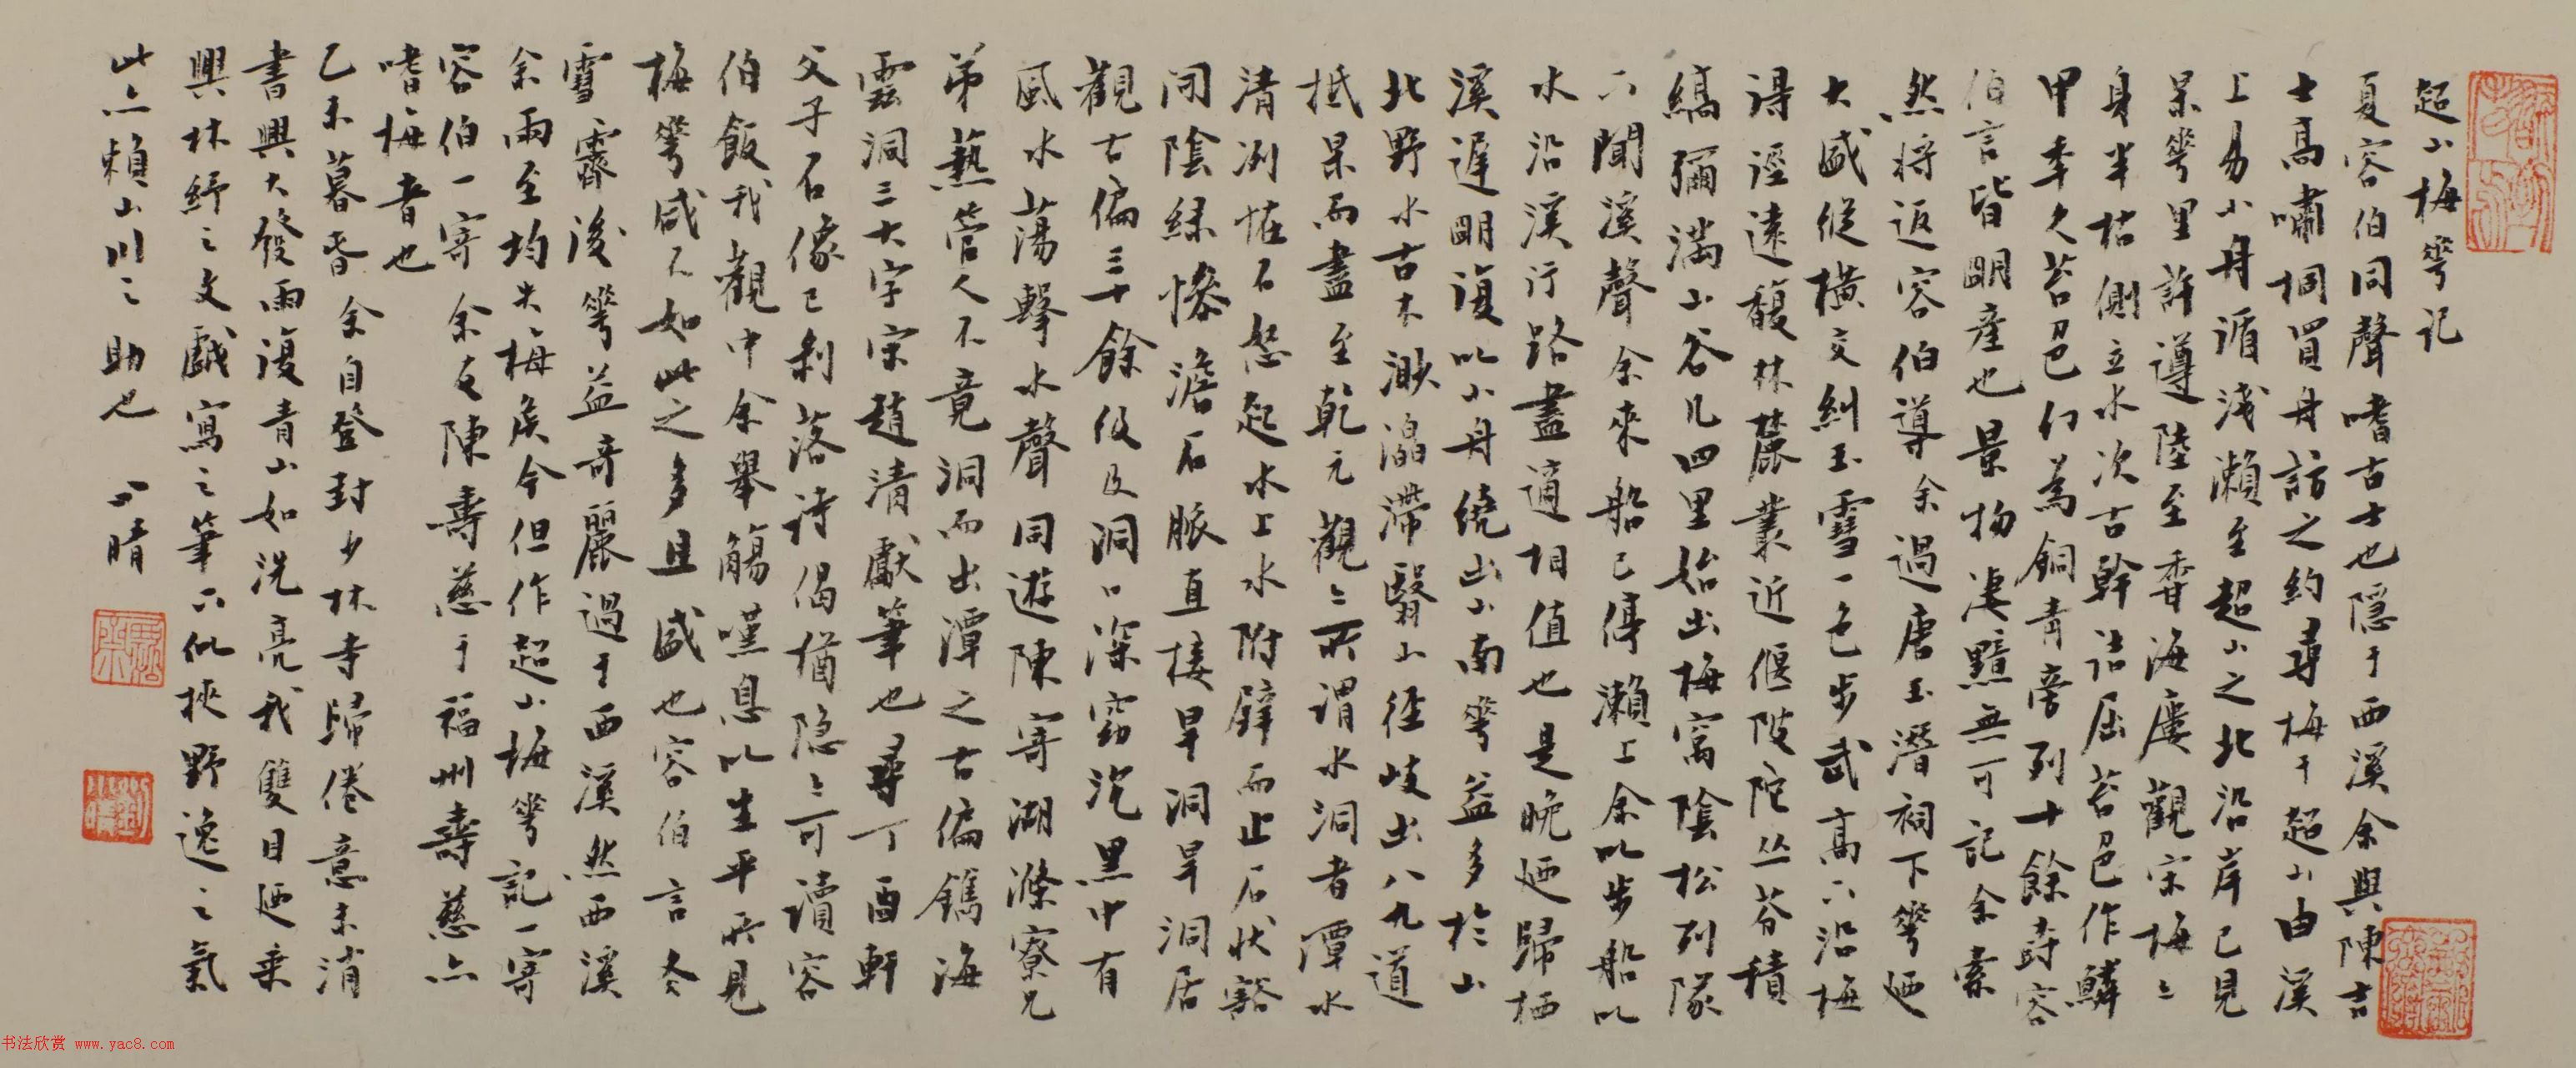 超山梅華记
夏容伯同聲嗜古士也隠于西溪余與陳吉
士高嘯桐買舟訪之約尋梅于超山由溪
上易小舟循浅瀨至超山之北沿岸已見
梟華里許遵陸至香海廔觀宋梅〻
身半枯側立水次古幹诘屈苔邑作鱗
甲年久苔邑幻為銅青旁列十餘尌容
伯言皆明產也景物凄黯無可記余索
然将返容伯導余過唐玉潛祠下華廼
大盛從横交糾玉雪一色步武高下沿梅
得逕遠馥林麓叢近偃陂陀丛芬積
縞彌滿山谷几四里始出梅窩陰松列隊
下聞溪聲余來船已停瀨上余以步船以
水沿溪行路盡適相值也是晚廼歸栖
溪遲明復以小舟绕出山南華益多於山
北野水古木渺㵝滯翳山径歧出八九道
抵杲而盡至乾元觀〻所谓水洞者潭水
清冽怪石怒起水上水附壁而止石状豁
闭陰绿惨澹石脈直接旱洞旱洞居
觀右偏三十餘级及洞口深窈沉黑中有
風水蕩擊水聲同遊陳寄湖滌寮兄
弟爇管人不竟洞而出潭之右偏鐫海
雲洞三大字宋趙清獻筆也尋丁酉軒
父子石像已剥落诗偈猶隐〻可讀容
伯飯我觀中余舉觴嘆息以生平所見
梅華咸不如此之多且盛也容伯言冬
雪霽後華益奇麗過于西溪然西溪
余两至均失梅矦今但作超山梅華記一寄
容伯一寄余友陳壽慈于福州壽慈亦
嗜梅者也
乙未暮春余自登封少林寺歸倦意未消
書興大發雨復青山如洗亮我雙目廼乘
興林纾之文戯寫之筆下似挾野逸之氣
此亦頼山川之助也 一晴
书法欣赏 www.yac8.com